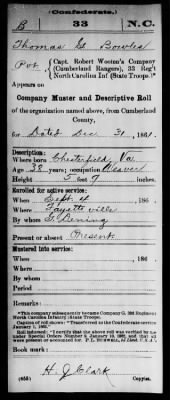 (Confederate.)
B 33 N.C.
Thomas G Bowles
Pvt., Capt. Robert Wooten's Company (Cumberland Rangers), 33 Reg't North Carolina Inf (State Troops).*
Appears on
Company Muster and Descriptive Roll
of the organization named above, from Cumberland
County,
for Dated Dec 31, 1861.
Description:
Where born Chesterfield, Va
Age 38 years; occupation Weaver
Height 5 feet 9 inches.
Enrolled for active service:
When Sept 4, 186
Where Fayetteville
By whom G. Dening
Present or absent Present
Mustered into service:
When , 186 .
Where
By whom
Period
Remarks:
*This company subsequently became Company G, 33d Regiment North Carolina Infantry (State Troops).
Caption of roll shows: "Transferred to the Confederate service January 1, 1862."
Indorsement of roll: "I certify that the above roll was verified by me under Special Orders Number 8, January 10, 1862, and that all were present or accounted for.
Book mark:
H. J. Clark
(655) Copyist.